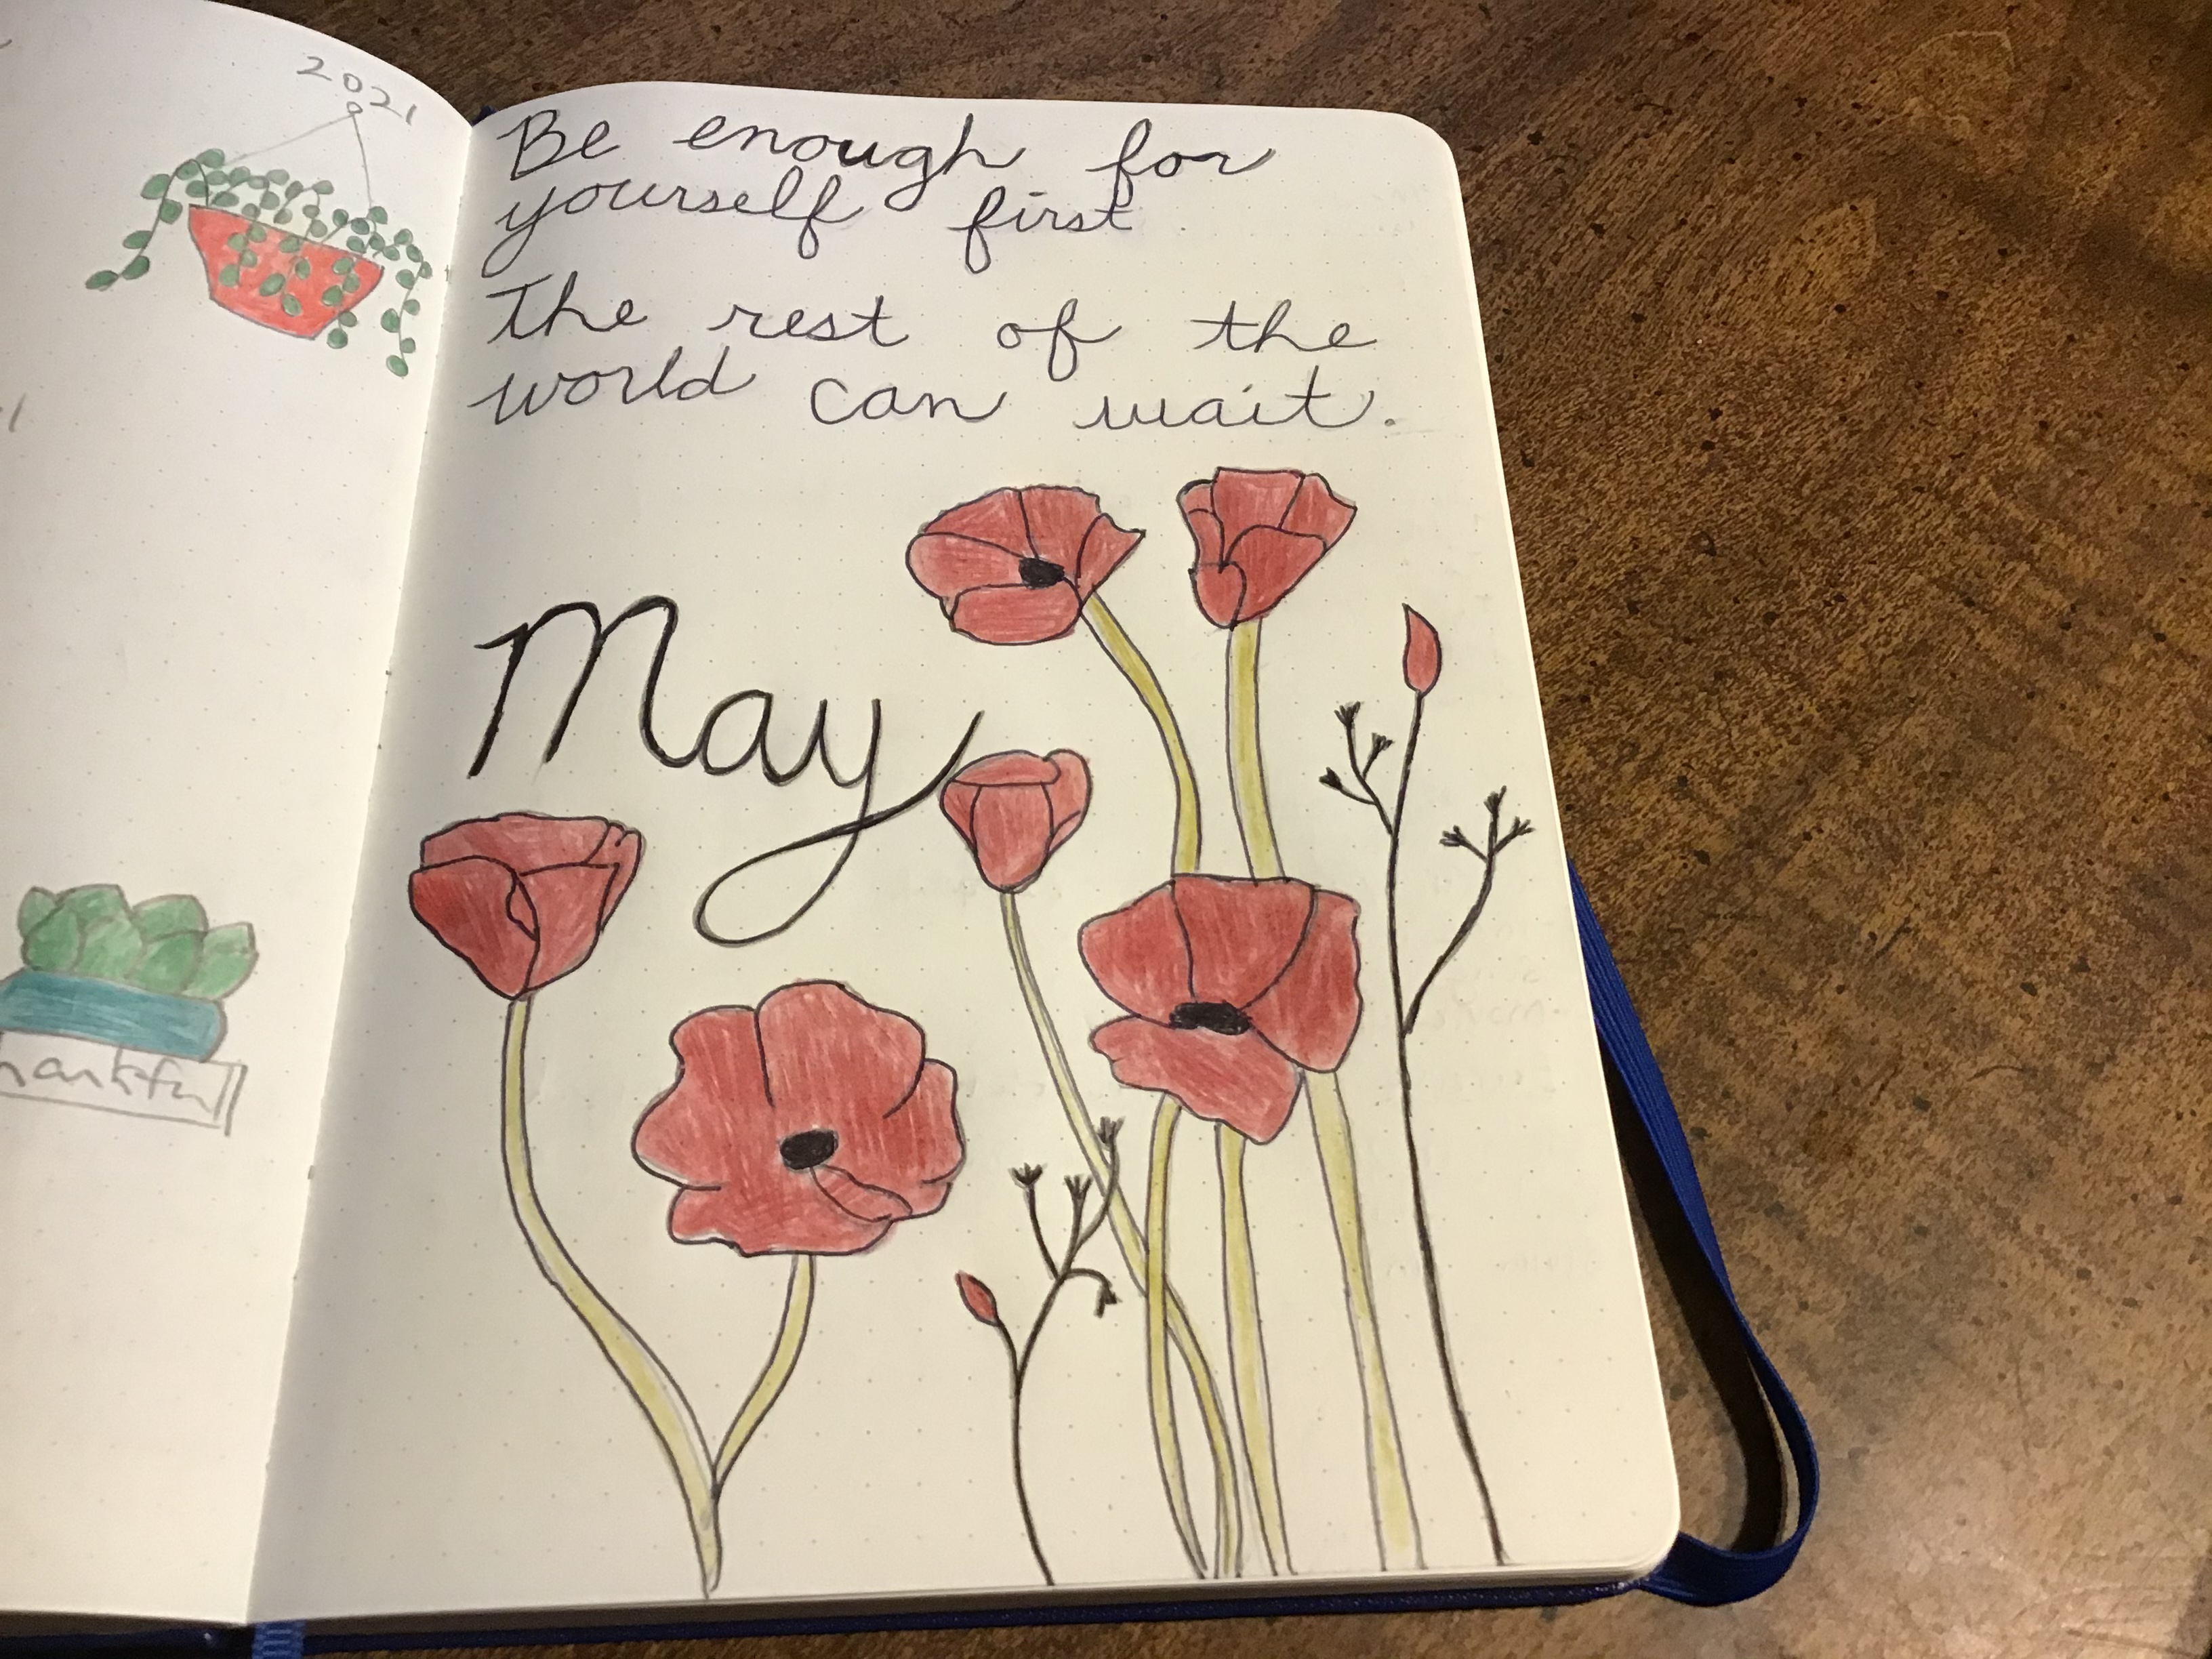 2021
Be enough for
yourself first.
The rest of the
world can wait.
May